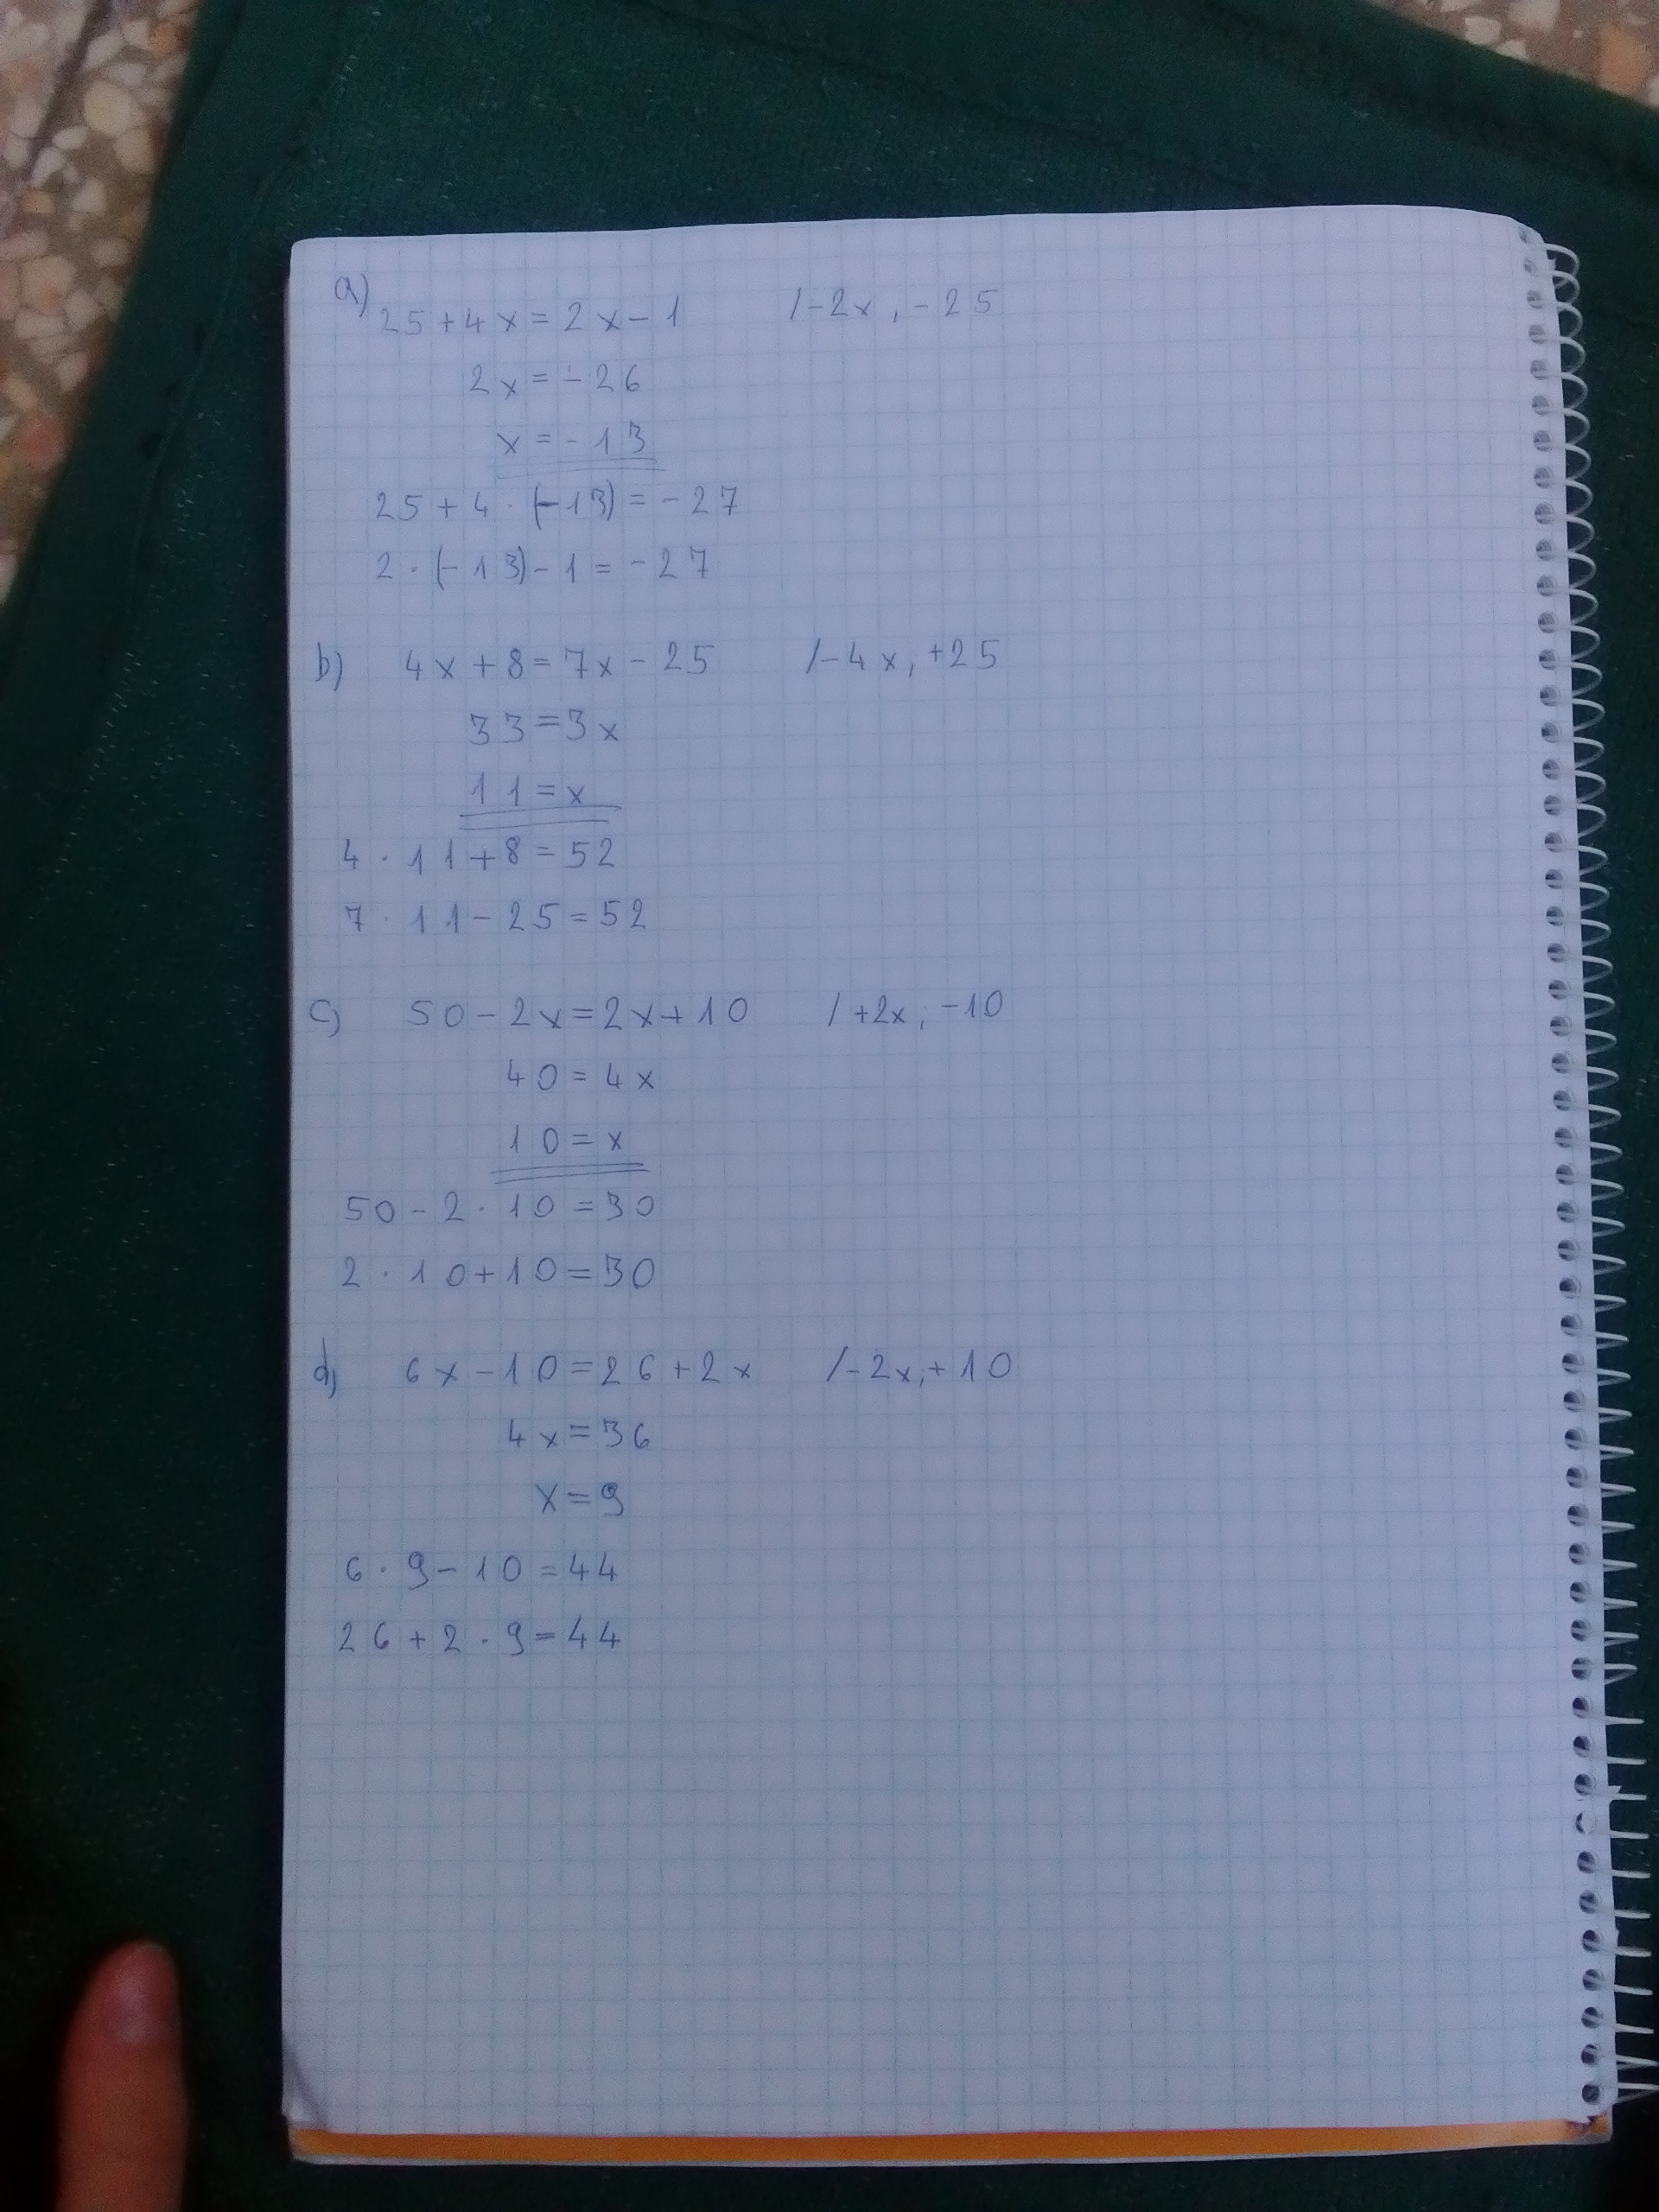 a) 25+4x=2x-1 /-2x, -25
2x=-26
x=-13
25+4·(-13)=-27
2·(-13)-1=-27
b) 4x+8=7x-25 /-4x; +25
33=3x
11=x
4·11+8=52
7·11-25=52
c) 50-2x=2x+10 /+2x; -10
40=4x
10=x
50-2·10=30
2·10+10=30
d) 6x-10=26+2x /-2x;+10
4x=36
x=9
6·9-10=44
26+2·9=44